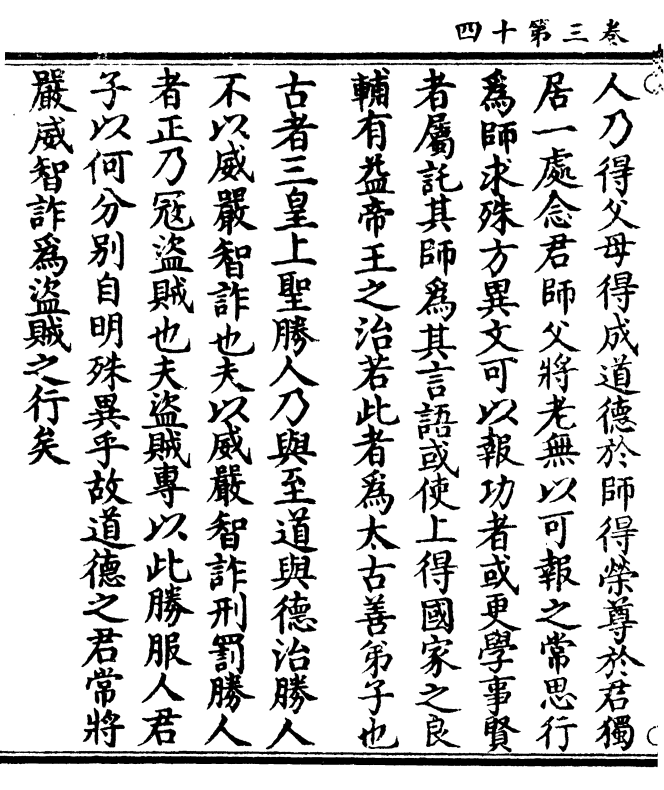 卷三第十四
人乃得父母得成道德於師得榮尊於君獨
居一處念君師父將老無以可報之常思行
爲師求殊方異文可以報功者或更學事賢
者屬託其師爲其言語或使上得國家之良
輔有益帝王之治若此者爲太古善弟子也
古者三皇上聖勝人乃與至道與德治勝人
不以威嚴智詐也夫以威嚴智詐刑罰勝人
者正乃寇盜賊也夫盜賊專以此勝服人君
子以何分別自明殊異乎故道德之君常將
嚴威智詐爲盜賊之行矣